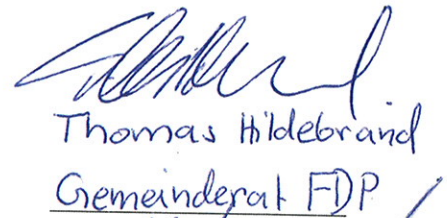 Thomas Hildebrand
Gemeinderat FDP